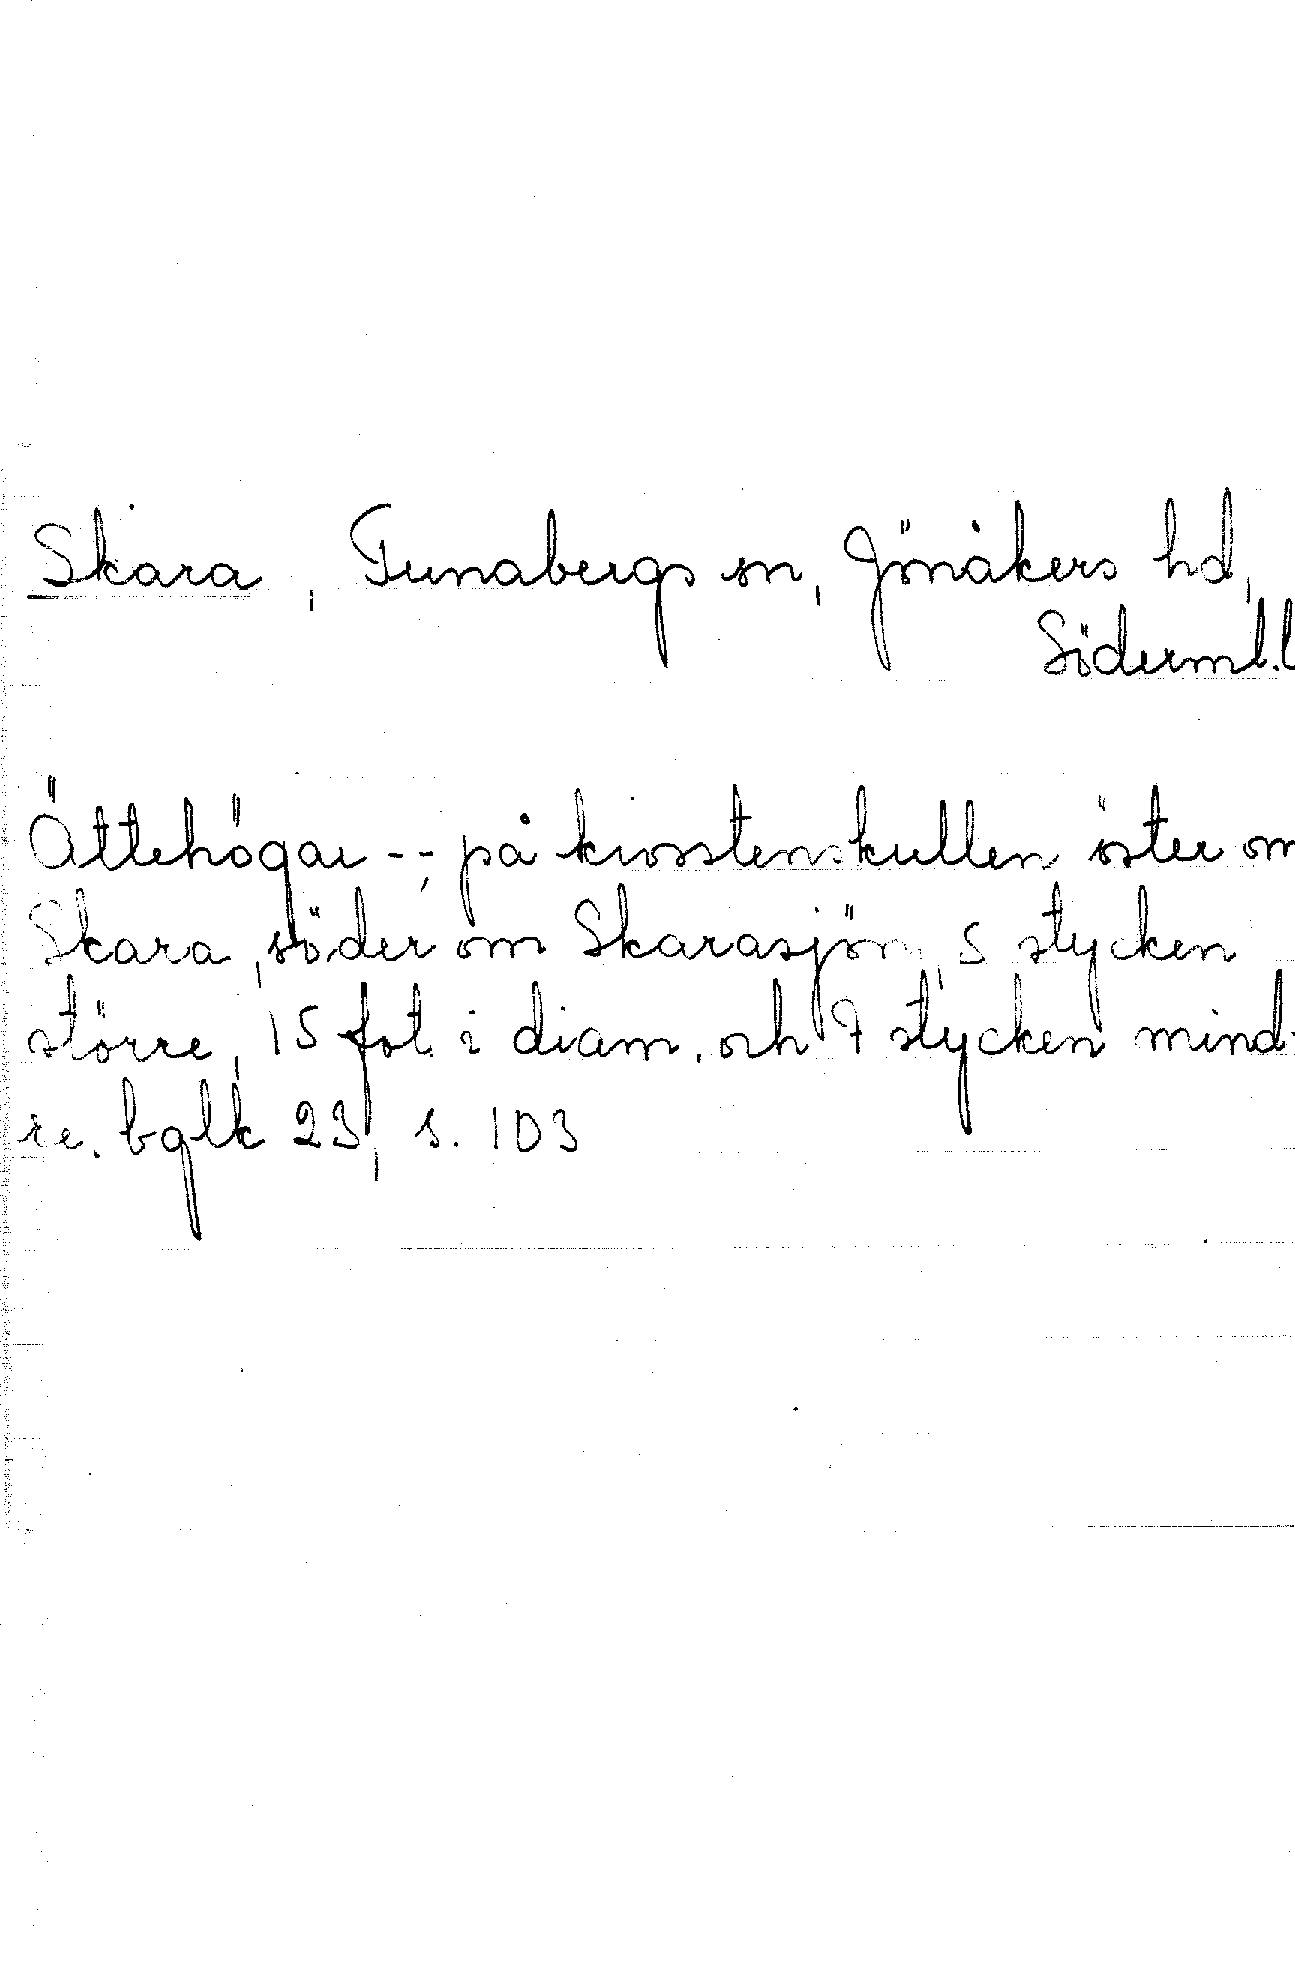 Skara, Tunabergs sn, Jönåkers hd,
Söderml.l
Ättehögar --; på krosstenskullen öster om
Skara, söder om Skarasjön, 5 stycken
större, 15 fot i diam. och 7 stycken mind-
re. bglk 23, s. 103